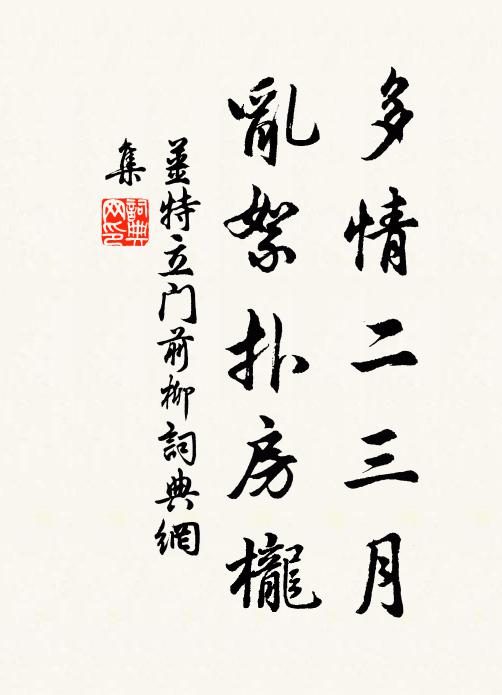 多情二三月
亂絮扑房櫳
姜特立門前柳詞典網
集
詞典
网印